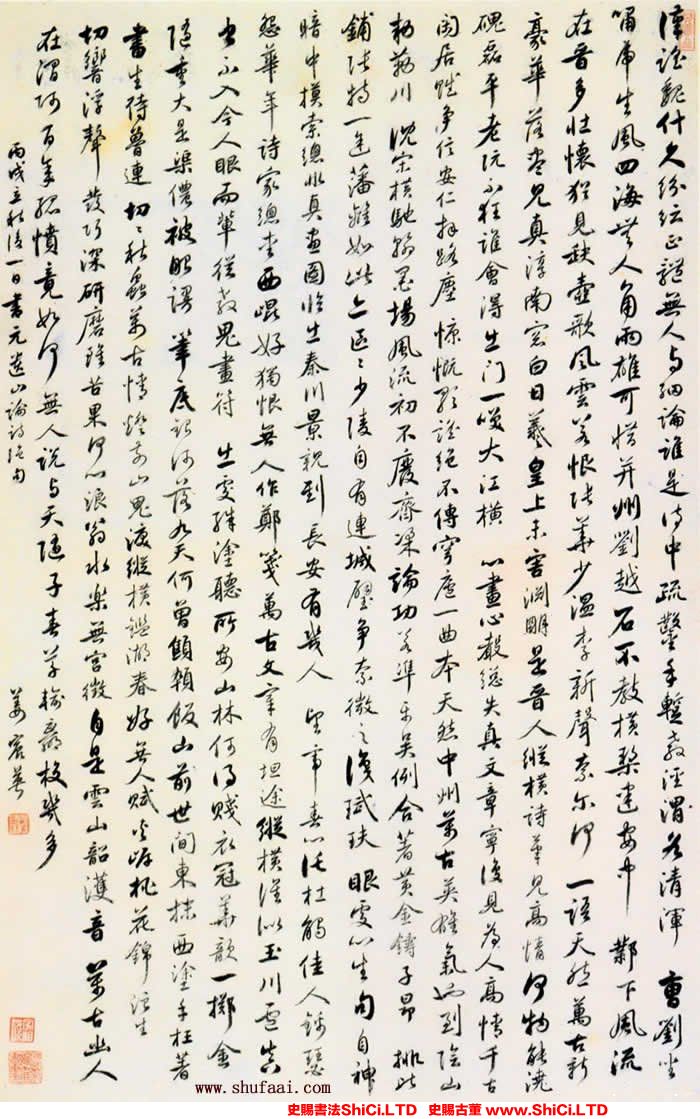 漢謠魏什久紛紜正體無人與細論誰是詩中疏鑿手暫教涇渭各清渾 曹劉坐
嘯虎生風四海無人角兩雄可惜并州劉越石不教橫槊建安中 鄴下風流
在晉多壯懷猶見缺壺歌風雲若恨張華少溫李新聲奈爾何 一語天然萬古新
豪華落盡見真淳南窗白日羲皇上未害淵明是晉人 縱橫詩筆見高情何物能澆
磈磊平老阮不狂誰會得出門一笑大江橫 心畫心聲總失真文章寧復見為人高情千古
閑居賦爭信安仁拜路塵 慷慨歌謠絕不傳穹廬一曲本天然中州萬古英雄氣也到陰山
敕勒川 沈宋橫馳翰墨場風流初不廢齊梁論功若準平吳例合著黃金鑄子昂 排比
鋪張特一途藩籬如此亦區區少陵自有連城璧爭奈微之識碔砆 眼處心生句自神
暗中摸索總非真畫圖臨出秦川景親到長安有幾人 望帝春心託杜鵑佳人錦瑟
怨華年詩家總愛西崑好獨恨無人作鄭箋 萬古文章有坦途縱橫誰似玉川盧真
書不入今人眼兒輩從教鬼畫符 出處殊塗聽所安山林何得賤衣冠華歆一擲金
隨重大是渠儂被眼謾 筆底銀河落九天何曾顦顇飯山前世間東抹西塗手枉著
書生待魯連 切切秋蟲萬古情燈前山鬼淚縱橫鑑湖春好無人賦夾岸桃花錦浪生
切響浮聲發巧深研磨雖苦果何心浪翁水樂無宮徵自是雲山韶濩音 萬古幽人
在澗阿百年孤憤竟如何無人說與天隨子春草輸贏校幾多
丙戌立秋後一日書元遺山論詩絕句 姜宸英
www.shufaai.com
史賜書法ShiCi.LTD 史賜古董 www.ShiCi.LTD